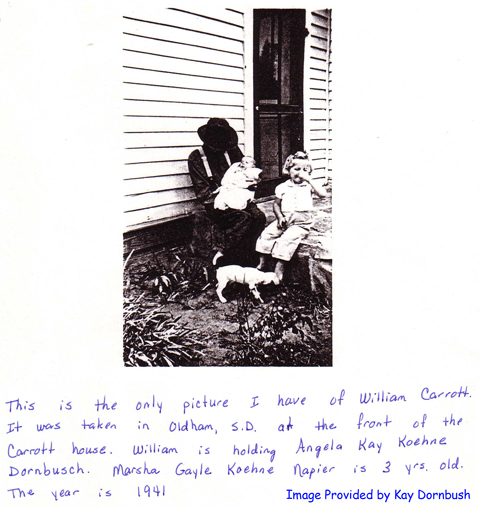 This is the only picture I have of William Carrott.
It was taken in Oldham, S.D. at the front of the
Carrott house. William is holding Angela Kay Koehne
Dornbusch. Marsha Gayle Koehne Napier is 3 yrs. old.
The year is 1941
Image Provided by Kay Dornbush